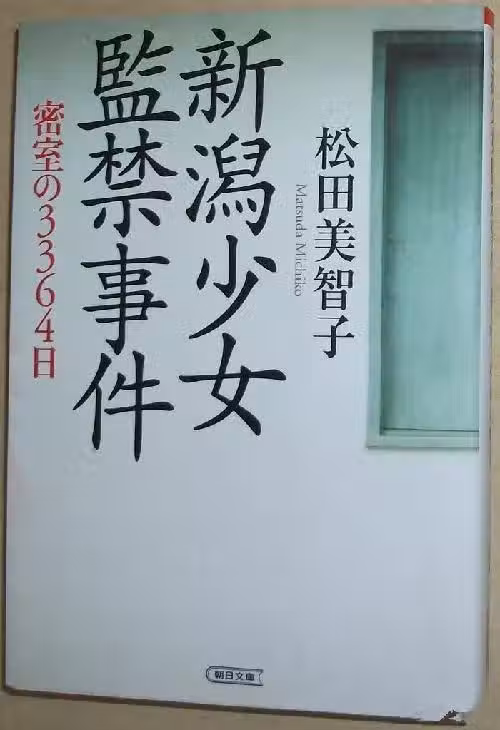 松田美智子
Matsuda Michiko
新潟少女
監禁事件
密室の3364日
朝日文庫